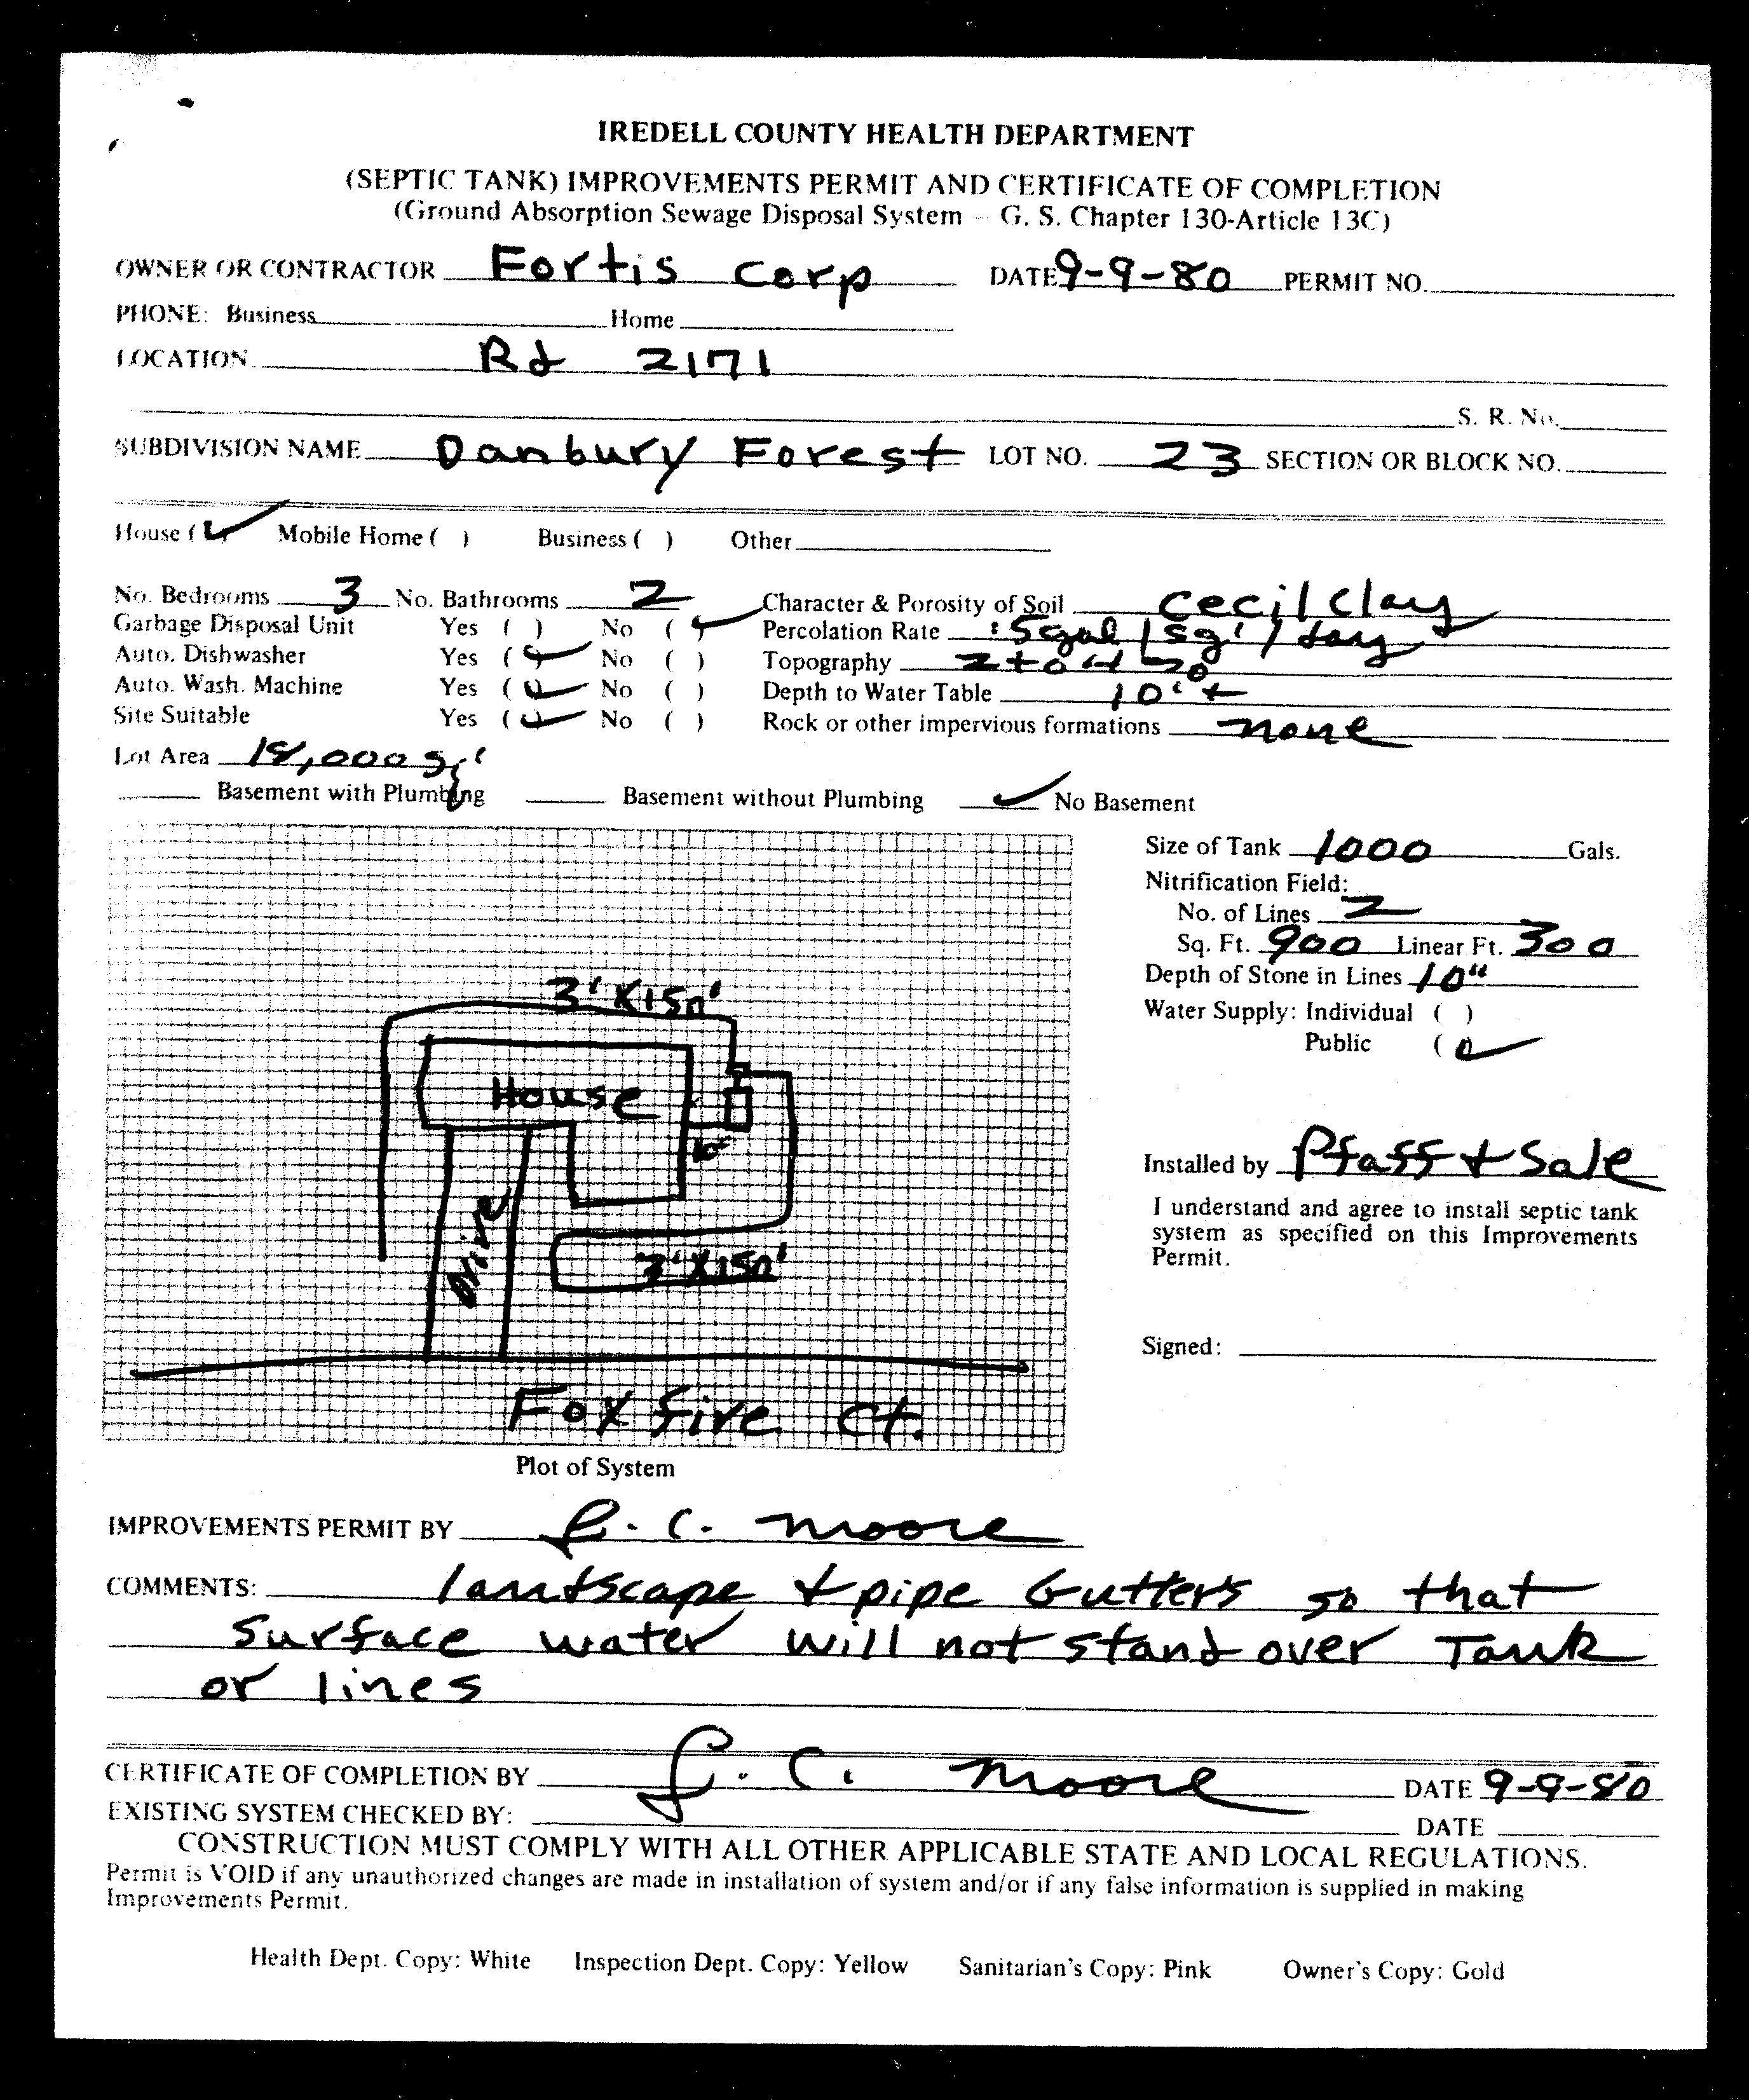 IREDELL COUNTY HEALTH DEPARTMENT
(SEPTIC TANK) IMPROVEMENTS PERMIT AND CERTIFICATE OF COMPLETION
(Ground Absorption Sewage Disposal System – G. S. Chapter 130-Article 13C)
OWNER OR CONTRACTOR Fortis Corp DATE 9-9-80 PERMIT NO.
PHONE: Business Home
LOCATION Rd 2171
S. R. No.
SUBDIVISION NAME Danbury Forest LOT NO. 23 SECTION OR BLOCK NO.
House (✓) Mobile Home ( ) Business ( ) Other
No. Bedrooms 3 No. Bathrooms 2 Character & Porosity of Soil Cecil Clay
Garbage Disposal Unit Yes ( ) No (✓) Percolation Rate .5gal/sq'/day
Auto. Dishwasher Yes (✓) No ( ) Topography 2 to 4 %
Auto. Wash. Machine Yes (✓) No ( ) Depth to Water Table 10'+
Site Suitable Yes (✓) No ( ) Rock or other impervious formations none
Lot Area 18,000 sq'
Basement with Plumbing Basement without Plumbing ✓ No Basement
Size of Tank 1000 Gals.
Nitrification Field:
No. of Lines 2
Sq. Ft. 900 Linear Ft. 300
Depth of Stone in Lines 10"
Water Supply: Individual ( )
Public (✓)
3' X 150'
House
10'
Drive
3' X 150'
Foxfire Ct.
Plot of System
Installed by Pfaff + Sale
I understand and agree to install septic tank
system as specified on this Improvements
Permit.
Signed:
IMPROVEMENTS PERMIT BY C. Moore
COMMENTS: landscape + pipe Gutters so that
surface water will not stand over Tank
or lines
CERTIFICATE OF COMPLETION BY C. Moore DATE 9-9-80
EXISTING SYSTEM CHECKED BY: DATE
CONSTRUCTION MUST COMPLY WITH ALL OTHER APPLICABLE STATE AND LOCAL REGULATIONS.
Permit is VOID if any unauthorized changes are made in installation of system and/or if any false information is supplied in making
Improvements Permit.
Health Dept. Copy: White Inspection Dept. Copy: Yellow Sanitarian's Copy: Pink Owner's Copy: Gold